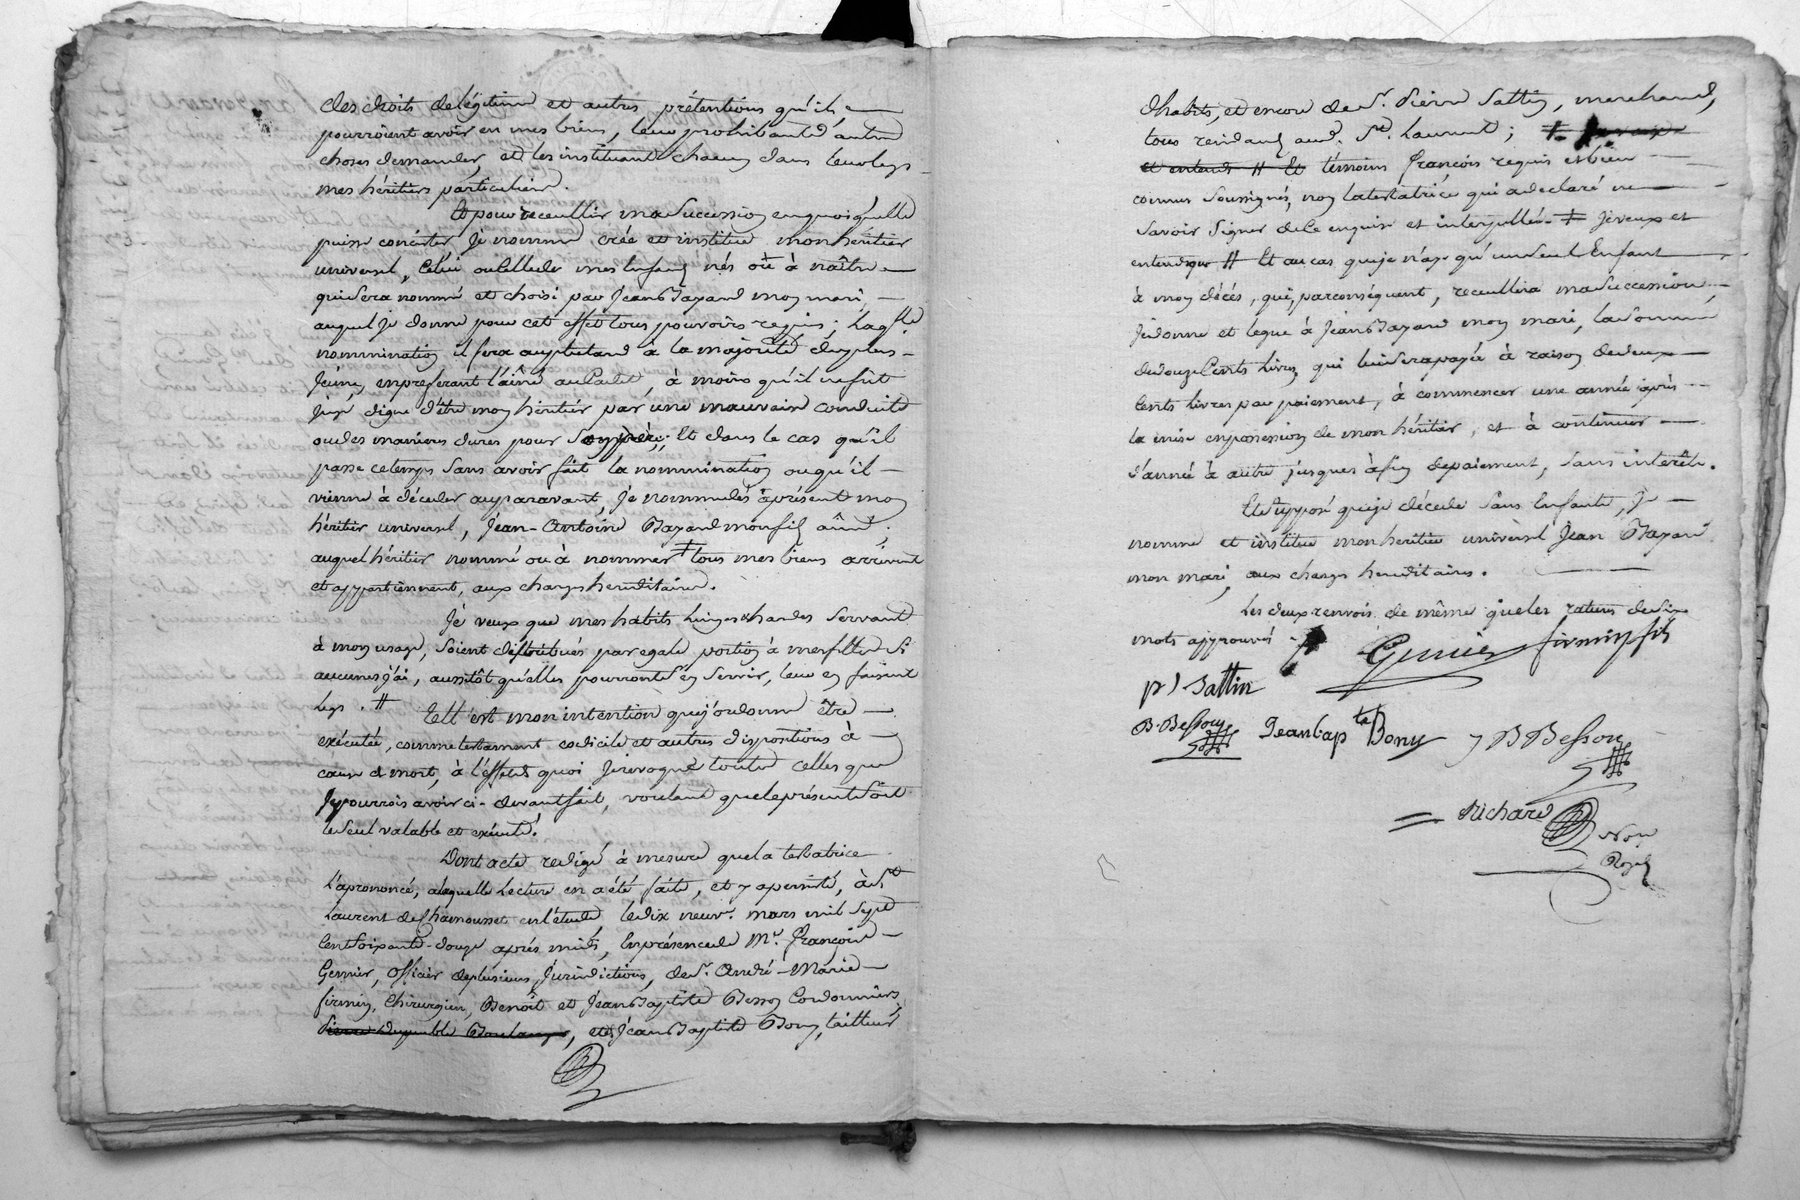 des droits de légitime et autres prétentions qu'ils
pourroient avoir en mes biens, leur prohibant d'autre
choses demander, et les instituant chacun dans leur legs
mes héritiers particuliers.
Et pour receuillir ma succession en quoi qu'elle
puisse concister, je nomme, crée et institue mon héritier
universel, celui ou celle de mes enfans nés où à naître
qui sera nommé et choisi par Jean Bayard mon mari,
auquel je donne pour cet effet tous pouvoirs requis; laq.lle
nommination il fera au plus tard à la majorité du plus
jeune, en préferant l'aîné au Cadet, à moins qu'il ne fût
jugé digne d'être mon héritier par une mauvaise conduite
ou des manieres dures pour son père; Et dans le cas qu'il
passe ce temps sans avoir fait la nommination ou qu'il
vienne à décéder auparavant, je nomme dès àprésent mon
héritier universel, Jean-Antoine Bayard mon fils aîné;
auquel héritier nommé ou à nommer ‡ tous mes biens arrivent
et appartiennent, aux charges hereditaires.
Je veux que mes habits, linges & hardes servant
à mon usage, soient distribués par egale portion à mes filles si
aucunes j'ai, aussitôt qu'elles pourront s'en servir, leur en faisant
legs. # Tell'est mon intention que j'ordonne être
exécutée, comme testament codicile et autres dispositions à
cause de mort, à l'effet de quoi je revoque toutes celles que
je pourrois avoir ci-devant fait, voulant que le présent soit
le seul valable et exécuté.
Dont acte redigé à mesure que la testatrice
l'a prononcé, à laquelle lecture en a été faite, et y a persisté, à S.t
Laurent de Chamousset en l'étude, le dix neuv.e mars mil sept
cent soixante-douze après midi, en présence de M.r François
Genier, officier de plusieurs jurisdictions, de S.r André-Marie
firmin, Chirurgien, Benoît et Jean Baptiste Besson Cordonniers
Boulanger, et Jean Baptiste Bony, tailleur
d'habits, et encore de S.r Pierre Sattin, marchand,
tous residans aud. S.t Laurent; ‡
et entends # Et témoins françois requis et bien
connus soussignés, non la testatrice qui a declaré ne
savoir signer de ce enquise et interpellée. ‡ je veux et
entends que # Et au cas que je n'aye qu'un seul Enfant
à mon décés, qui, par conséquent, receuillira ma succession,
je donne et legue à Jean Bayard mon mari, la somme
de douze Cents livres, qui lui sera payée à raison de deux
Cents livres par paiement, à commencer une année après
la mise en possession de mon héritier, et à continuer
d'année à autre jusques à fin de paiement, sans intérêts.
Et supposé que je décede sans Enfants, je
nomme et institue mon heritier universel Jean Bayard
mon mari, aux charges hereditaires.
Les deux renvois de même que les ratures de six
mots approuvés
Genier firmin fils
p) Sattin
B. Besson Jean bap te Bony J B Besson
Richard
Not.
Royal